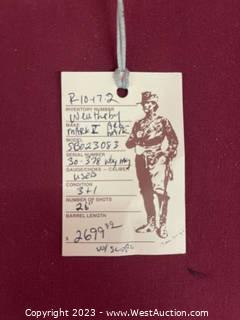 R-10172
INVENTORY NUMBER
Weatherby
MAKE
MARK V
MODEL
SB023083
SERIAL NUMBER
30-378 Wby Mag
GAUGE/CHOKE - CALIBER
USED
CONDITION
3+1
NUMBER OF SHOTS
26"
BARREL LENGTH
$ 2699 92
w/ scope
Copyright 2023 - www.WestAuction.com